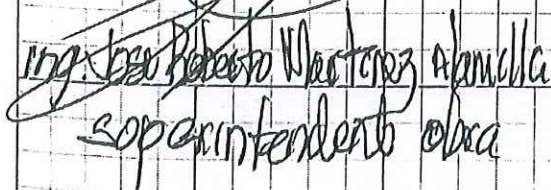 Ing. Jose Roberto Martinez Alanilla
soperintendente obra